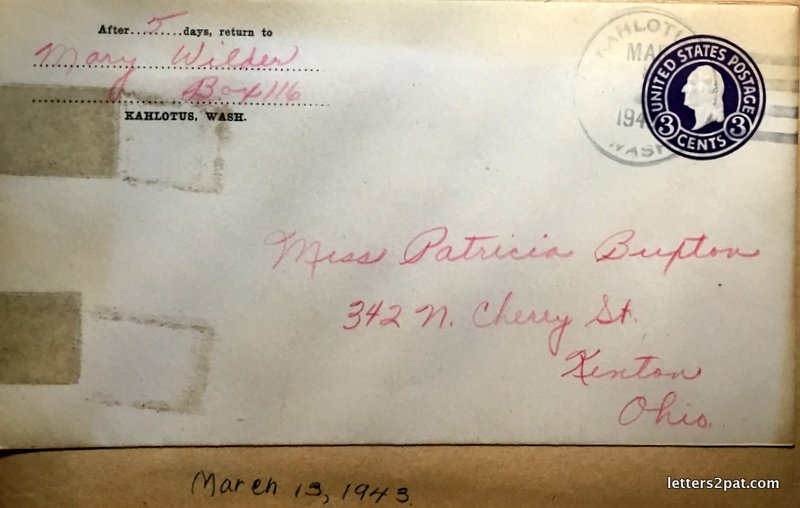 After.....5.....days, return to
Mary Wilder
Box 116
KAHLOTUS, WASH.
KAHLOTUS
MAR
194
WASH
UNITED STATES POSTAGE
3 CENTS 3
Miss Patricia Bufton
342 N. Cherry St.
Kenton
Ohio.
March 13, 1943.
letters2pat.com